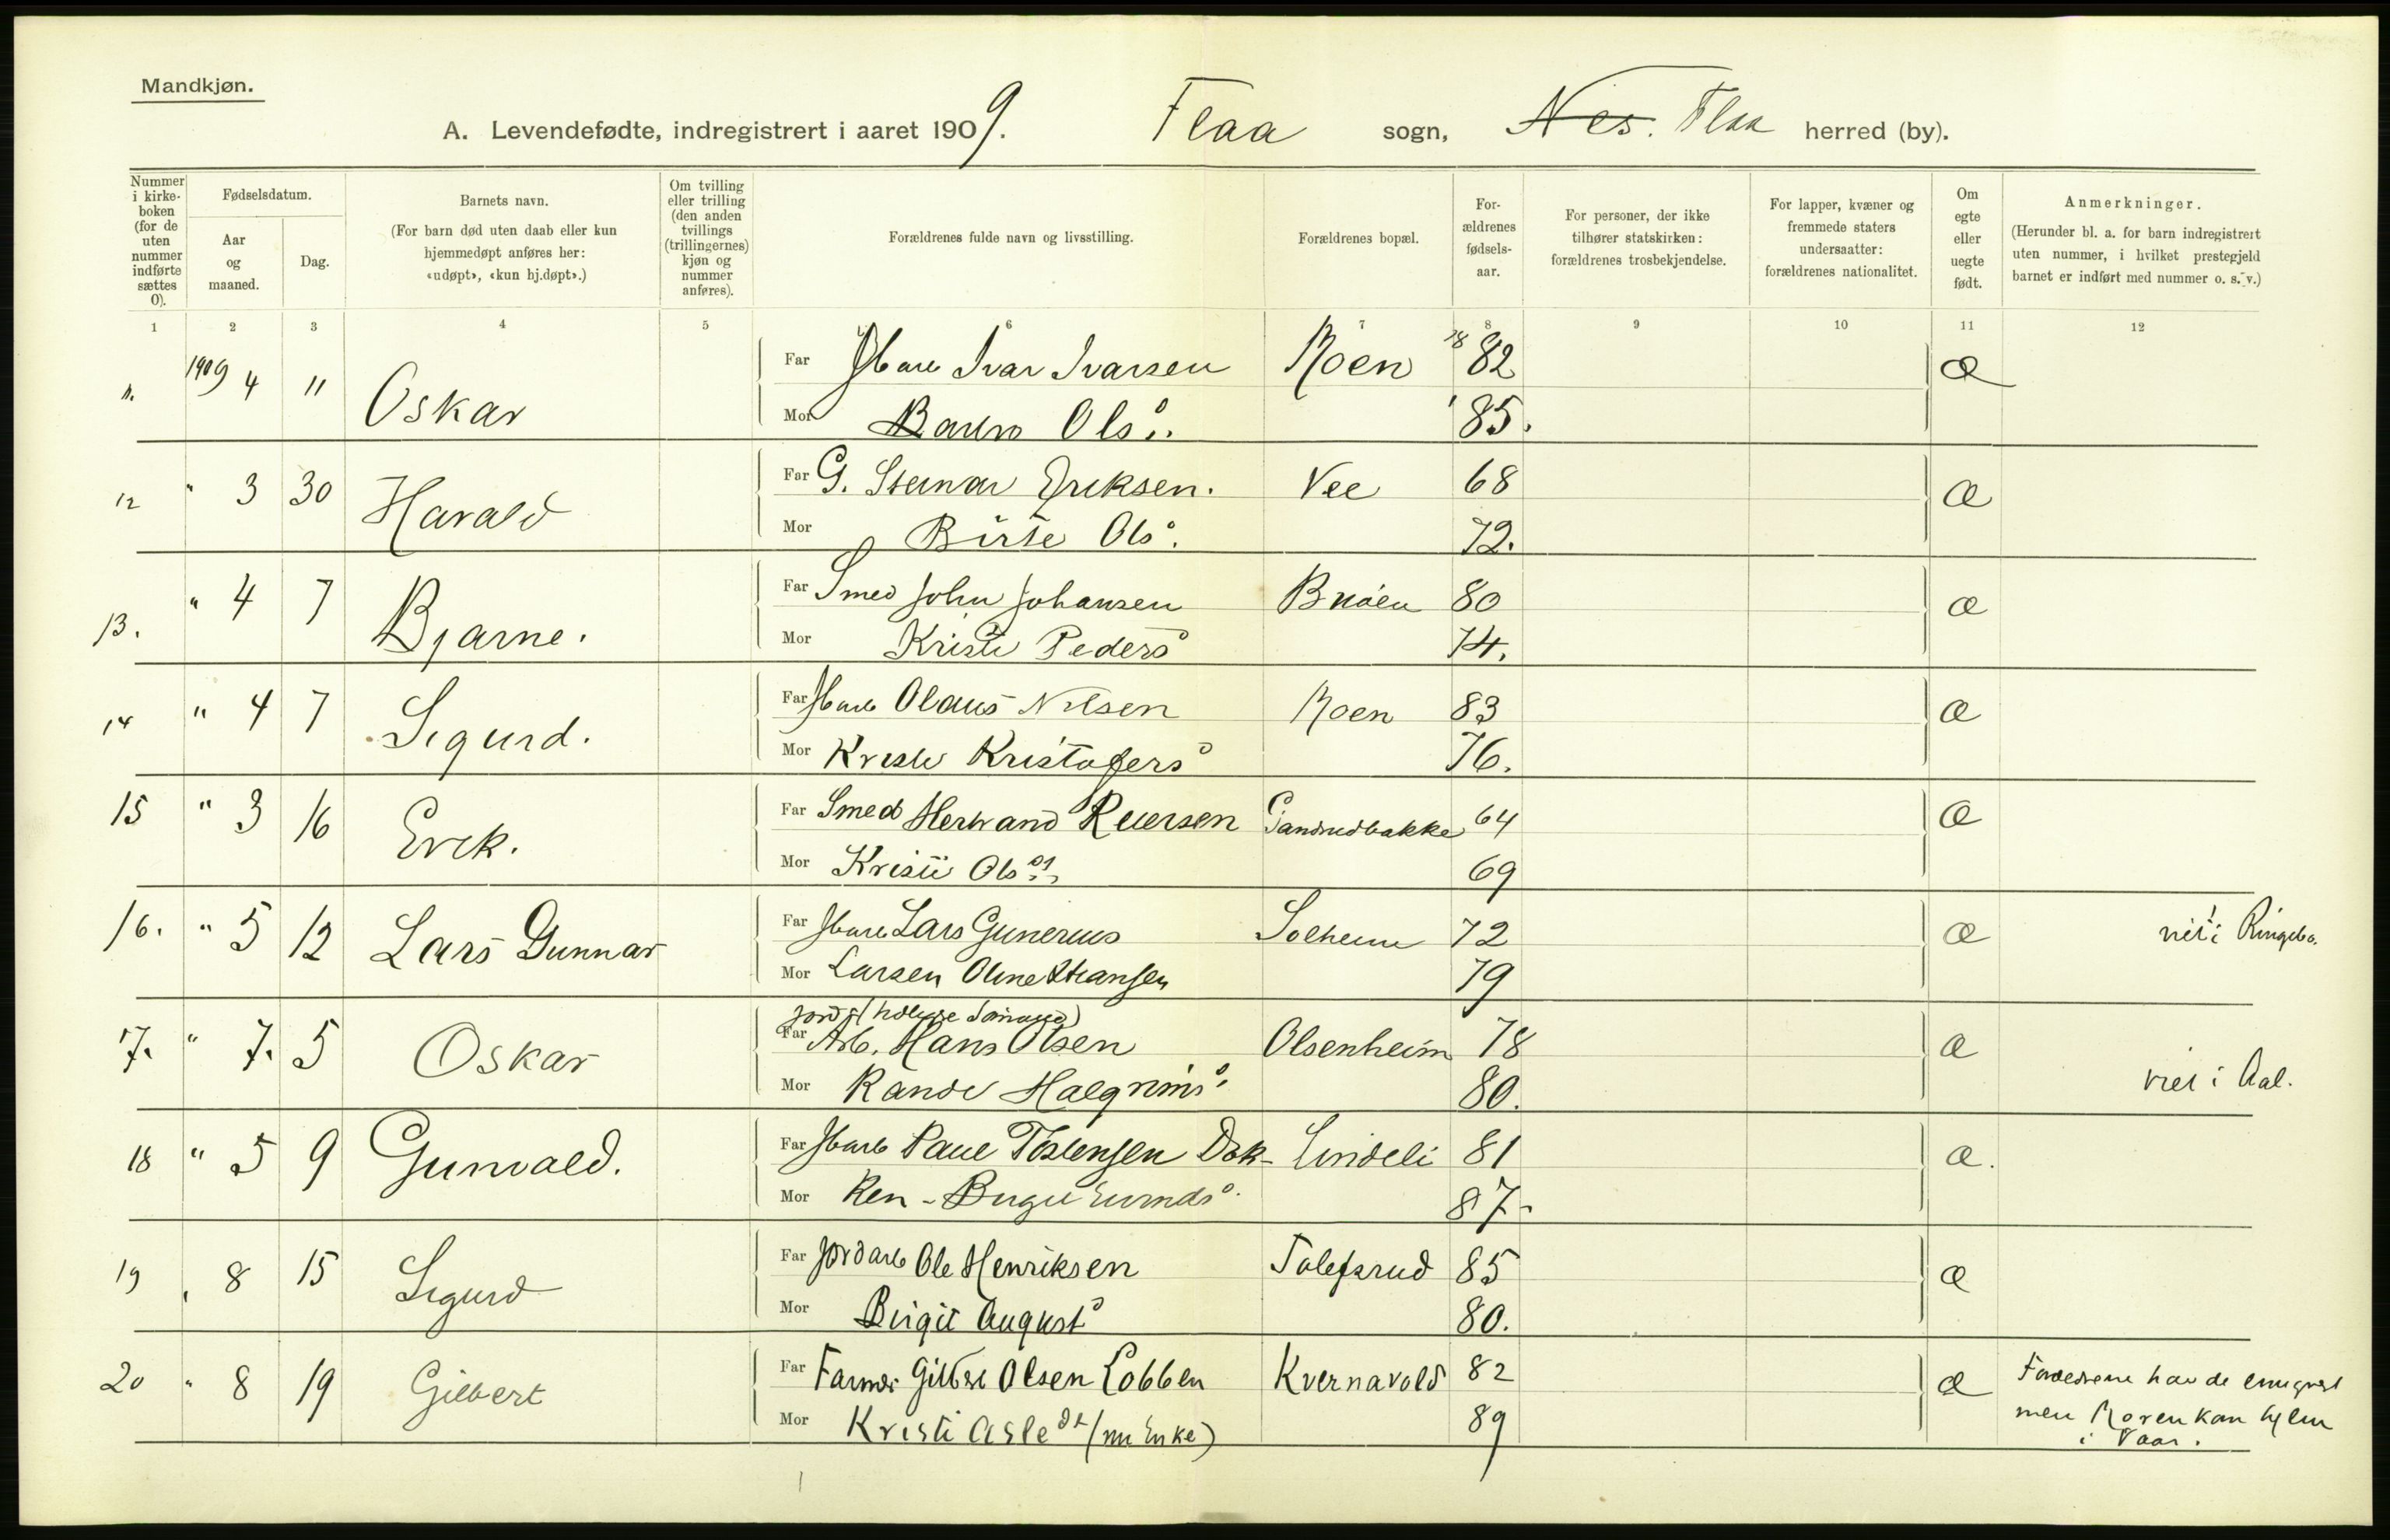 Mandkjøn.
A. Levendefødte, indregistrert i aaret 1909. Flaa sogn, Nes. Flaa herred (by).
Nummer i kirkeboken (for de uten nummer indførte sættes 0).
Fødselsdatum.
Aar og maaned.
Dag.
Barnets navn.
(For barn død uten daab eller kun hjemmedøpt anføres her: «udøpt», «kun hj.døpt».)
Om tvilling eller trilling (den anden tvillings (trillingernes) kjøn og nummer anføres).
Forældrenes fulde navn og livsstilling.
Forældrenes bopæl.
Forældrenes fødselsaar.
For personer, der ikke tilhører statskirken: forældrenes trosbekjendelse.
For lapper, kvæner og fremmede staters undersaatter: forældrenes nationalitet.
Om egte eller uegte født.
Anmerkninger.
(Herunder bl. a. for barn indregistrert uten nummer, i hvilket prestegjeld barnet er indført med nummer o. s. v.)
1 2 3 4 5 6 7 8 9 10 11 12
11. 1909 4 11 Oskar Far Ivar Ivarsen Roen 18 82 æ
Mor Ols 85.
12 " 3 30 Harald Far G. Steinar Eriksen. Vee 68 æ
Mor Birte Ols. 72.
13. " 4 7 Bjarne. Far Smed John Johansen Bråten 80 æ
Mor Kristi Peders 74.
14 " 4 7 Sigurd. Far Olaus Nilsen Roen 83 æ
Mor Kristi Kristofers 76.
15 " 3 16 Erik. Far Smed Herbrand Reiersen Gandrudbakke 64 æ
Mor Kristi Ols 69
16. " 5 12 Lars Gunnar Far Lars Gunerius Solheim 72 æ viet i Ringebo.
Mor Larsen Oline Hansen 79
17. " 7. 5 Oskar Far Arb. Hans Olsen Olsenheim 78 æ viet i Aal.
Mor Randi Halgrims 80.
18 " 5 9 Gunvald. Far Paul Torstensen Dok- Lindeli 81 æ.
Mor ken - Birgit 87.
19 " 8 15 Sigurd Far Jordarb Ole Henriksen Tolefsrud 85 æ
Mor Birgit August 80.
20 " 8 19 Gilbert Far Farmer Gilbert Olsen Lobben Kvernavold 82 æ Forældrene havde emigrert
Mor Kristi Asle dt (nu Enke) 89 men Moren kom hjem
i Vaar.